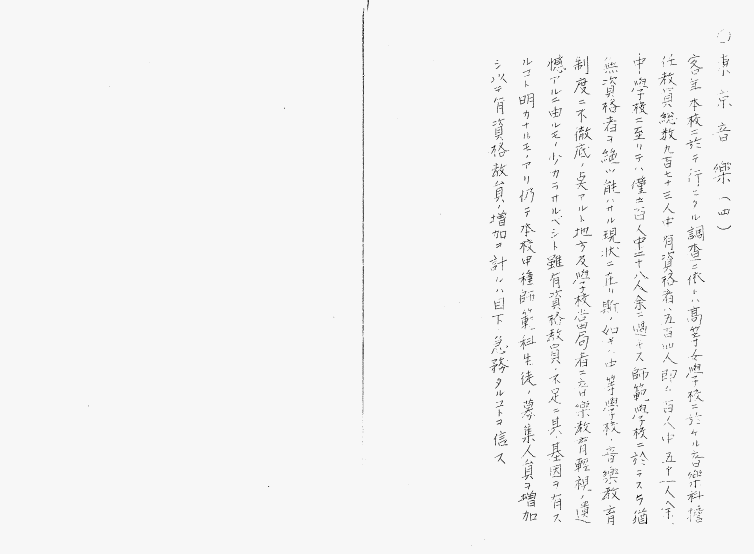 〇東京音樂(四)
客年本校ニ於テ行ヒタル調査ニ依レハ高等女學校ニ於ケル音樂科擔
任教員総数九百七十三人中有資格者ハ五百四人即チ百人中五十一人余
中學校ニ至リテハ僅ニ百人中二十八人余ニ過キス師範學校ニ於テスラ猶
無資格者ヲ絶ツ能ハサル現状ニ在リ斯ノ如キハ中等學校ノ音樂教育
制度ニ不徹底ノ点アルト地方及學校當局者ニ於ケル樂教育輕視ノ遺
憾アルニ由ルモノ少カラサルベシト雖有資格教員ノ不足ニ其ノ基因ヲ有ス
ルコト明カナルモノアリ仍テ本校甲種師範科生徒ノ募集人員ヲ増加
シ以テ有資格教員ノ増加ヲ計ルハ目下ノ急務タルコトヲ信ス